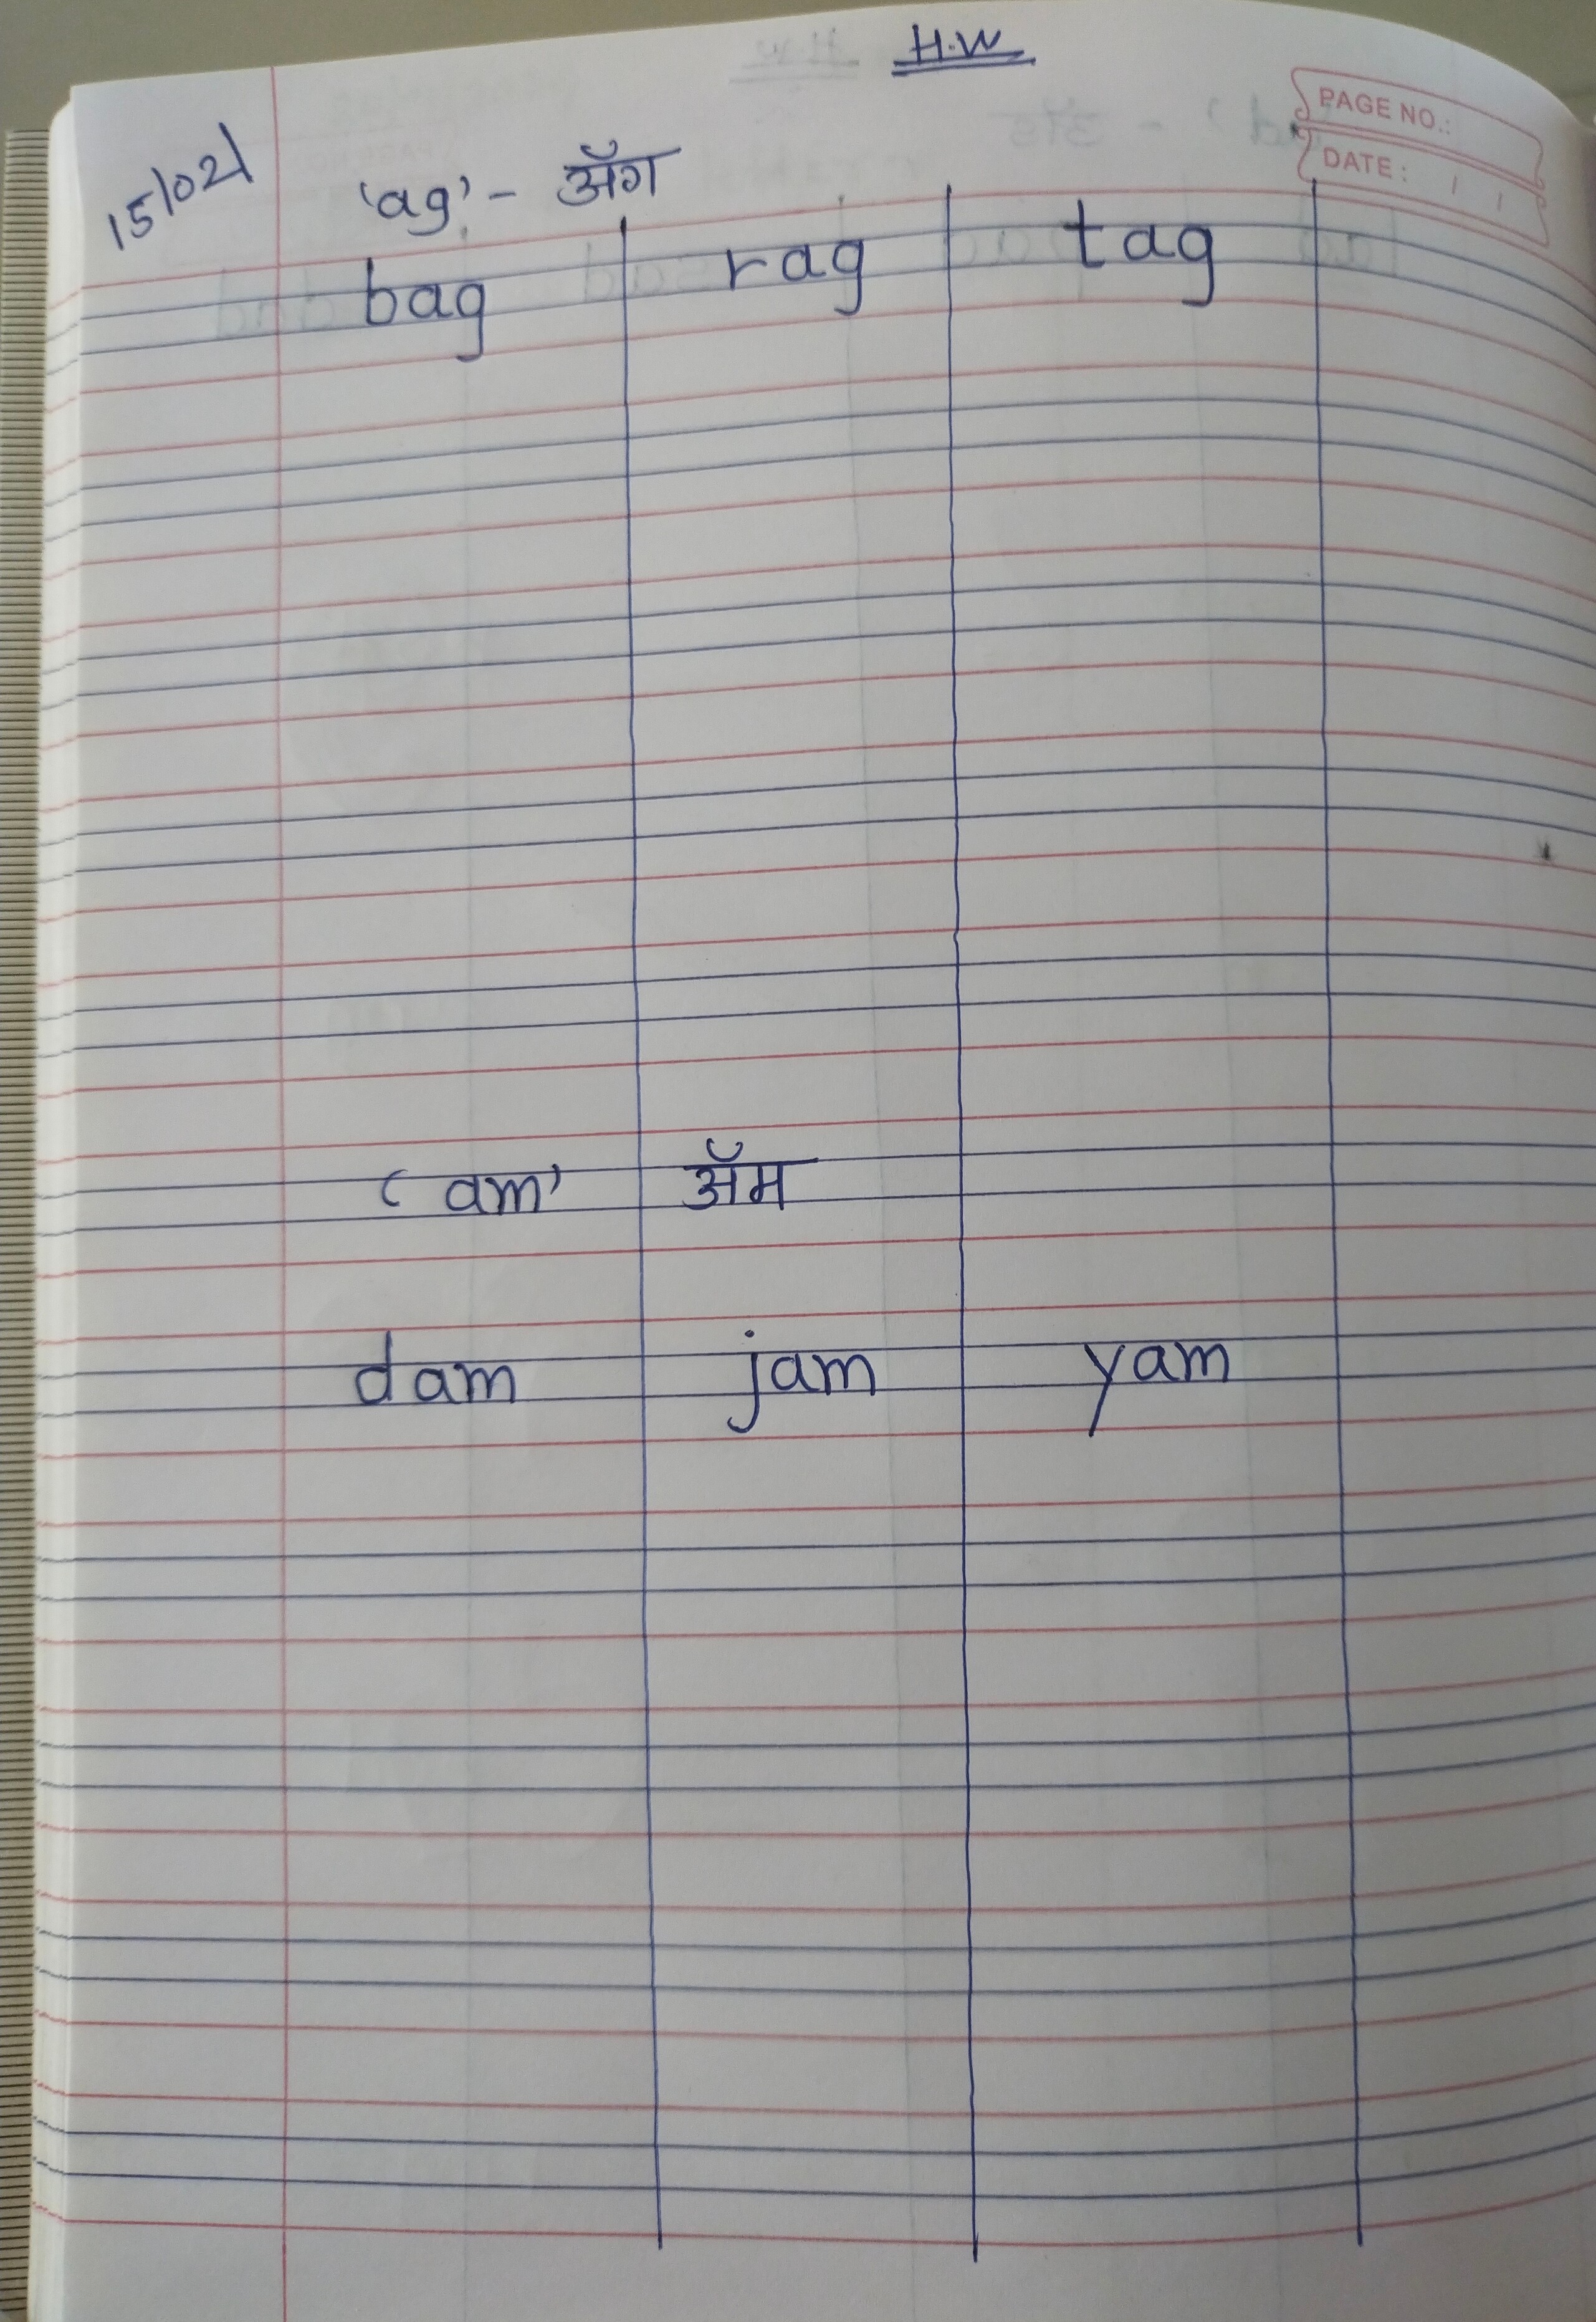 H.W
PAGE NO.:
DATE: / /
15/02/
'ag' - ॲग
bag rag tag
'am' ॲम
dam jam yam